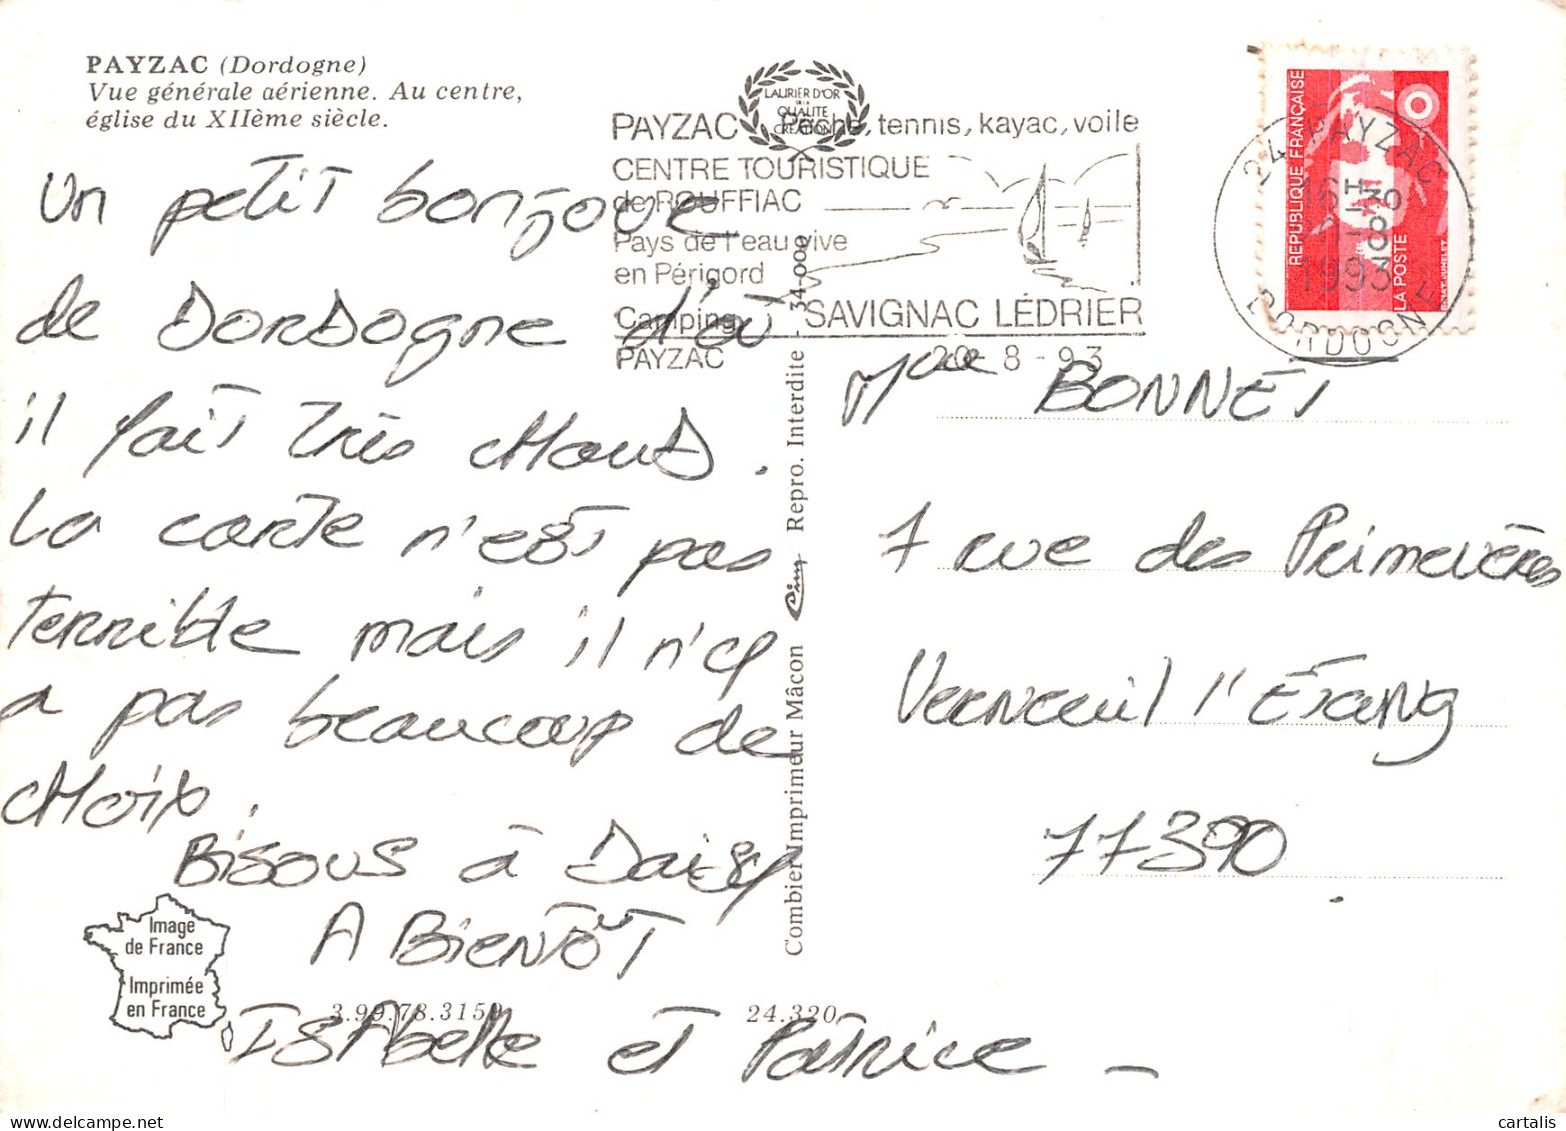 PAYZAC (Dordogne)
Vue générale aérienne. Au centre,
église du XIIème siècle.
Un petit bonjour
de DORDogne d'où
il fait Très cHauD.
La carte n'est pas
Terrible mais il n'y
a pas beaucoup de
cHoix.
Bisous à Daisy
A BienTôT
ISAbelle et Patrice
LAURIER D'OR
DE LA
QUALITE
CREATION
PAYZAC Pêche, tennis, kayac, voile
CENTRE TOURISTIQUE
de ROUFFIAC
Pays de l'eau vive
en Périgord
Camping
SAVIGNAC LÉDRIER
PAYZAC
20-8-93
24 PAYZAC
16H30
1993
DORDOGNE
REPUBLIQUE FRANÇAISE
LA POSTE
Mme BONNET
7 rue des Primevères
Verneuil l'Étang
77390
Combier Imprimeur Mâcon Cim Repro. Interdite - 34-000
Image
de France
Imprimée
en France
3.99.78.3159
24.320
cartalis